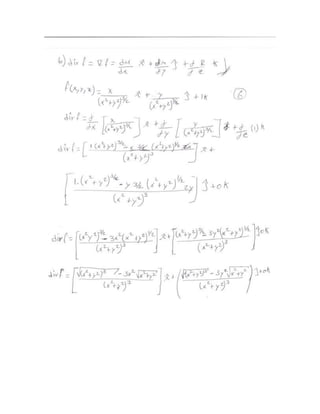 b) div f = ∇f = dm/dx i + dn/dy j + dR/dz k
f(x,y,z) = x/(x²+y²)^3/2 i + y/(x²+y²)^3/2 j + 1k
div f = d/dx [x/(x²+y²)^3/2] i + d/dy [y/(x²+y²)^3/2] j + d/dz (1)k
div f = [1.(x²+y²)^3/2 - x 3/2 (x²+y²)^1/2 2x / (x²+y²)³] i +
[1.(x²+y²)^3/2 - y 3/2 (x²+y²)^1/2 2y / (x²+y²)³] j + 0k
div f = [(x²+y²)^3/2 - 3x²(x²+y²)^1/2 / (x²+y²)³] i + [(x²+y²)^3/2 - 3y²(x²+y²)^1/2 / (x²+y²)³] j + 0k
div f = [√(x²+y²)³ - 3x²√x²+y² / (x²+y²)³] i + (√(x²+y²)³ - 3y²√x²+y² / (x²+y²)³) j + 0k